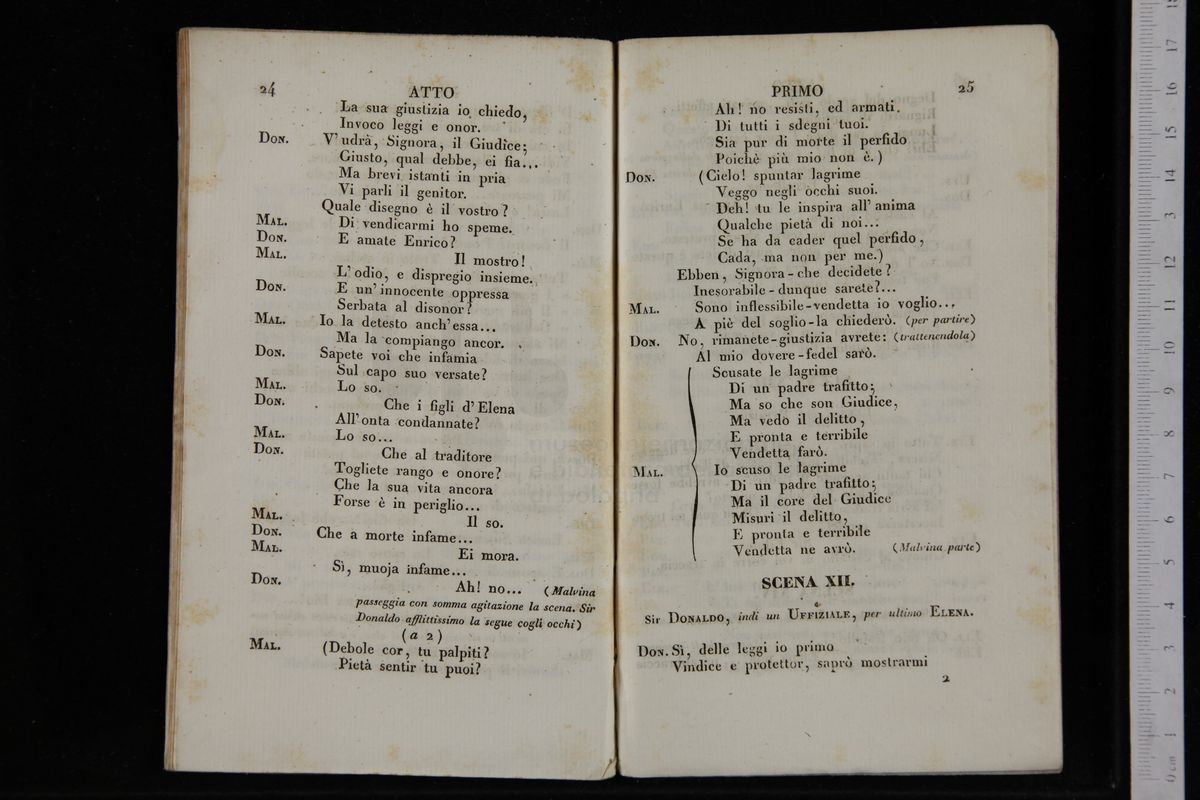 24 ATTO
La sua giustizia io chiedo,
Invoco leggi e onor.
DON. V' udrà, Signora, il Giudice;
Giusto, qual debbe, ei fia...
Ma brevi istanti in pria
Vi parli il genitor.
Quale disegno è il vostro?
MAL. Di vendicarmi ho speme.
DON. E amate Enrico?
MAL. Il mostro!
L' odio, e dispregio insieme.
DON. E un' innocente oppressa
Serbata al disonor?
MAL. Io la detesto anch' essa...
Ma la compiango ancor.
DON. Sapete voi che infamia
Sul capo suo versate?
MAL. Lo so.
DON. Che i figli d' Elena
All' onta condannate?
MAL. Lo so...
DON. Che al traditore
Togliete rango e onore?
Che la sua vita ancora
Forse è in periglio...
MAL. Il so.
DON. Che a morte infame...
MAL. Ei mora.
Sì, muoja infame...
DON. Ah! no... (Malvina
passeggia con somma agitazione la scena. Sir
Donaldo afflittissimo la segue cogli occhi)
(a 2)
MAL. (Debole cor, tu palpiti?
Pietà sentir tu puoi?
PRIMO 25
Ah! no resisti, ed armati
Di tutti i sdegni tuoi.
Sia pur di morte il perfido
Poichè più mio non è.)
DON. (Cielo! spuntar lagrime
Veggo negli occhi suoi.
Deh! tu le inspira all' anima
Qualche pietà di noi...
Se ha da cader quel perfido,
Cada, ma non per me.)
Ebben, Signora - che decidete?
Inesorabile - dunque sarete?...
MAL. Sono inflessibile - vendetta io voglio...
A piè del soglio - la chiederò. (per partire)
DON. No, rimanete - giustizia avrete: (trattenendola)
Al mio dovere - fedel sarò.
Scusate le lagrime
Di un padre trafitto;
Ma so che son Giudice,
Ma vedo il delitto,
E pronta e terribile
Vendetta farò.
MAL. Io scuso le lagrime
Di un padre trafitto;
Ma il core del Giudice
Misuri il delitto,
E pronta e terribile
Vendetta ne avrò. (Malvina parte)
SCENA XII.
Sir DONALDO, indi un UFFIZIALE, per ultimo ELENA.
DON. Sì, delle leggi io primo
Vindice e protettor, saprò mostrarmi
2